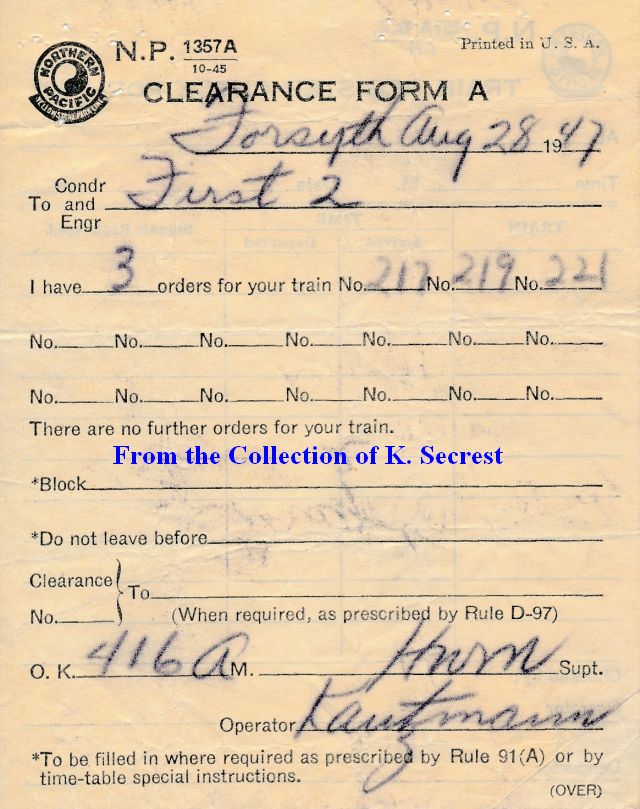 NORTHERN PACIFIC YELLOWSTONE PARK LINE
N.P. 1357A
10-45
Printed in U. S. A.
CLEARANCE FORM A
Forsyth Aug 28 1947
Condr
To and First 2
Engr
I have 3 orders for your train No. 217 No. 219 No. 221
No. No. No. No. No. No. No.
No. No. No. No. No. No. No.
There are no further orders for your train.
From the Collection of K. Secrest
*Block
*Do not leave before
Clearance
To
No. (When required, as prescribed by Rule D-97)
O. K. 416 A M. HWM Supt.
Operator Kautzmann
*To be filled in where required as prescribed by Rule 91(A) or by
time-table special instructions.
(OVER)